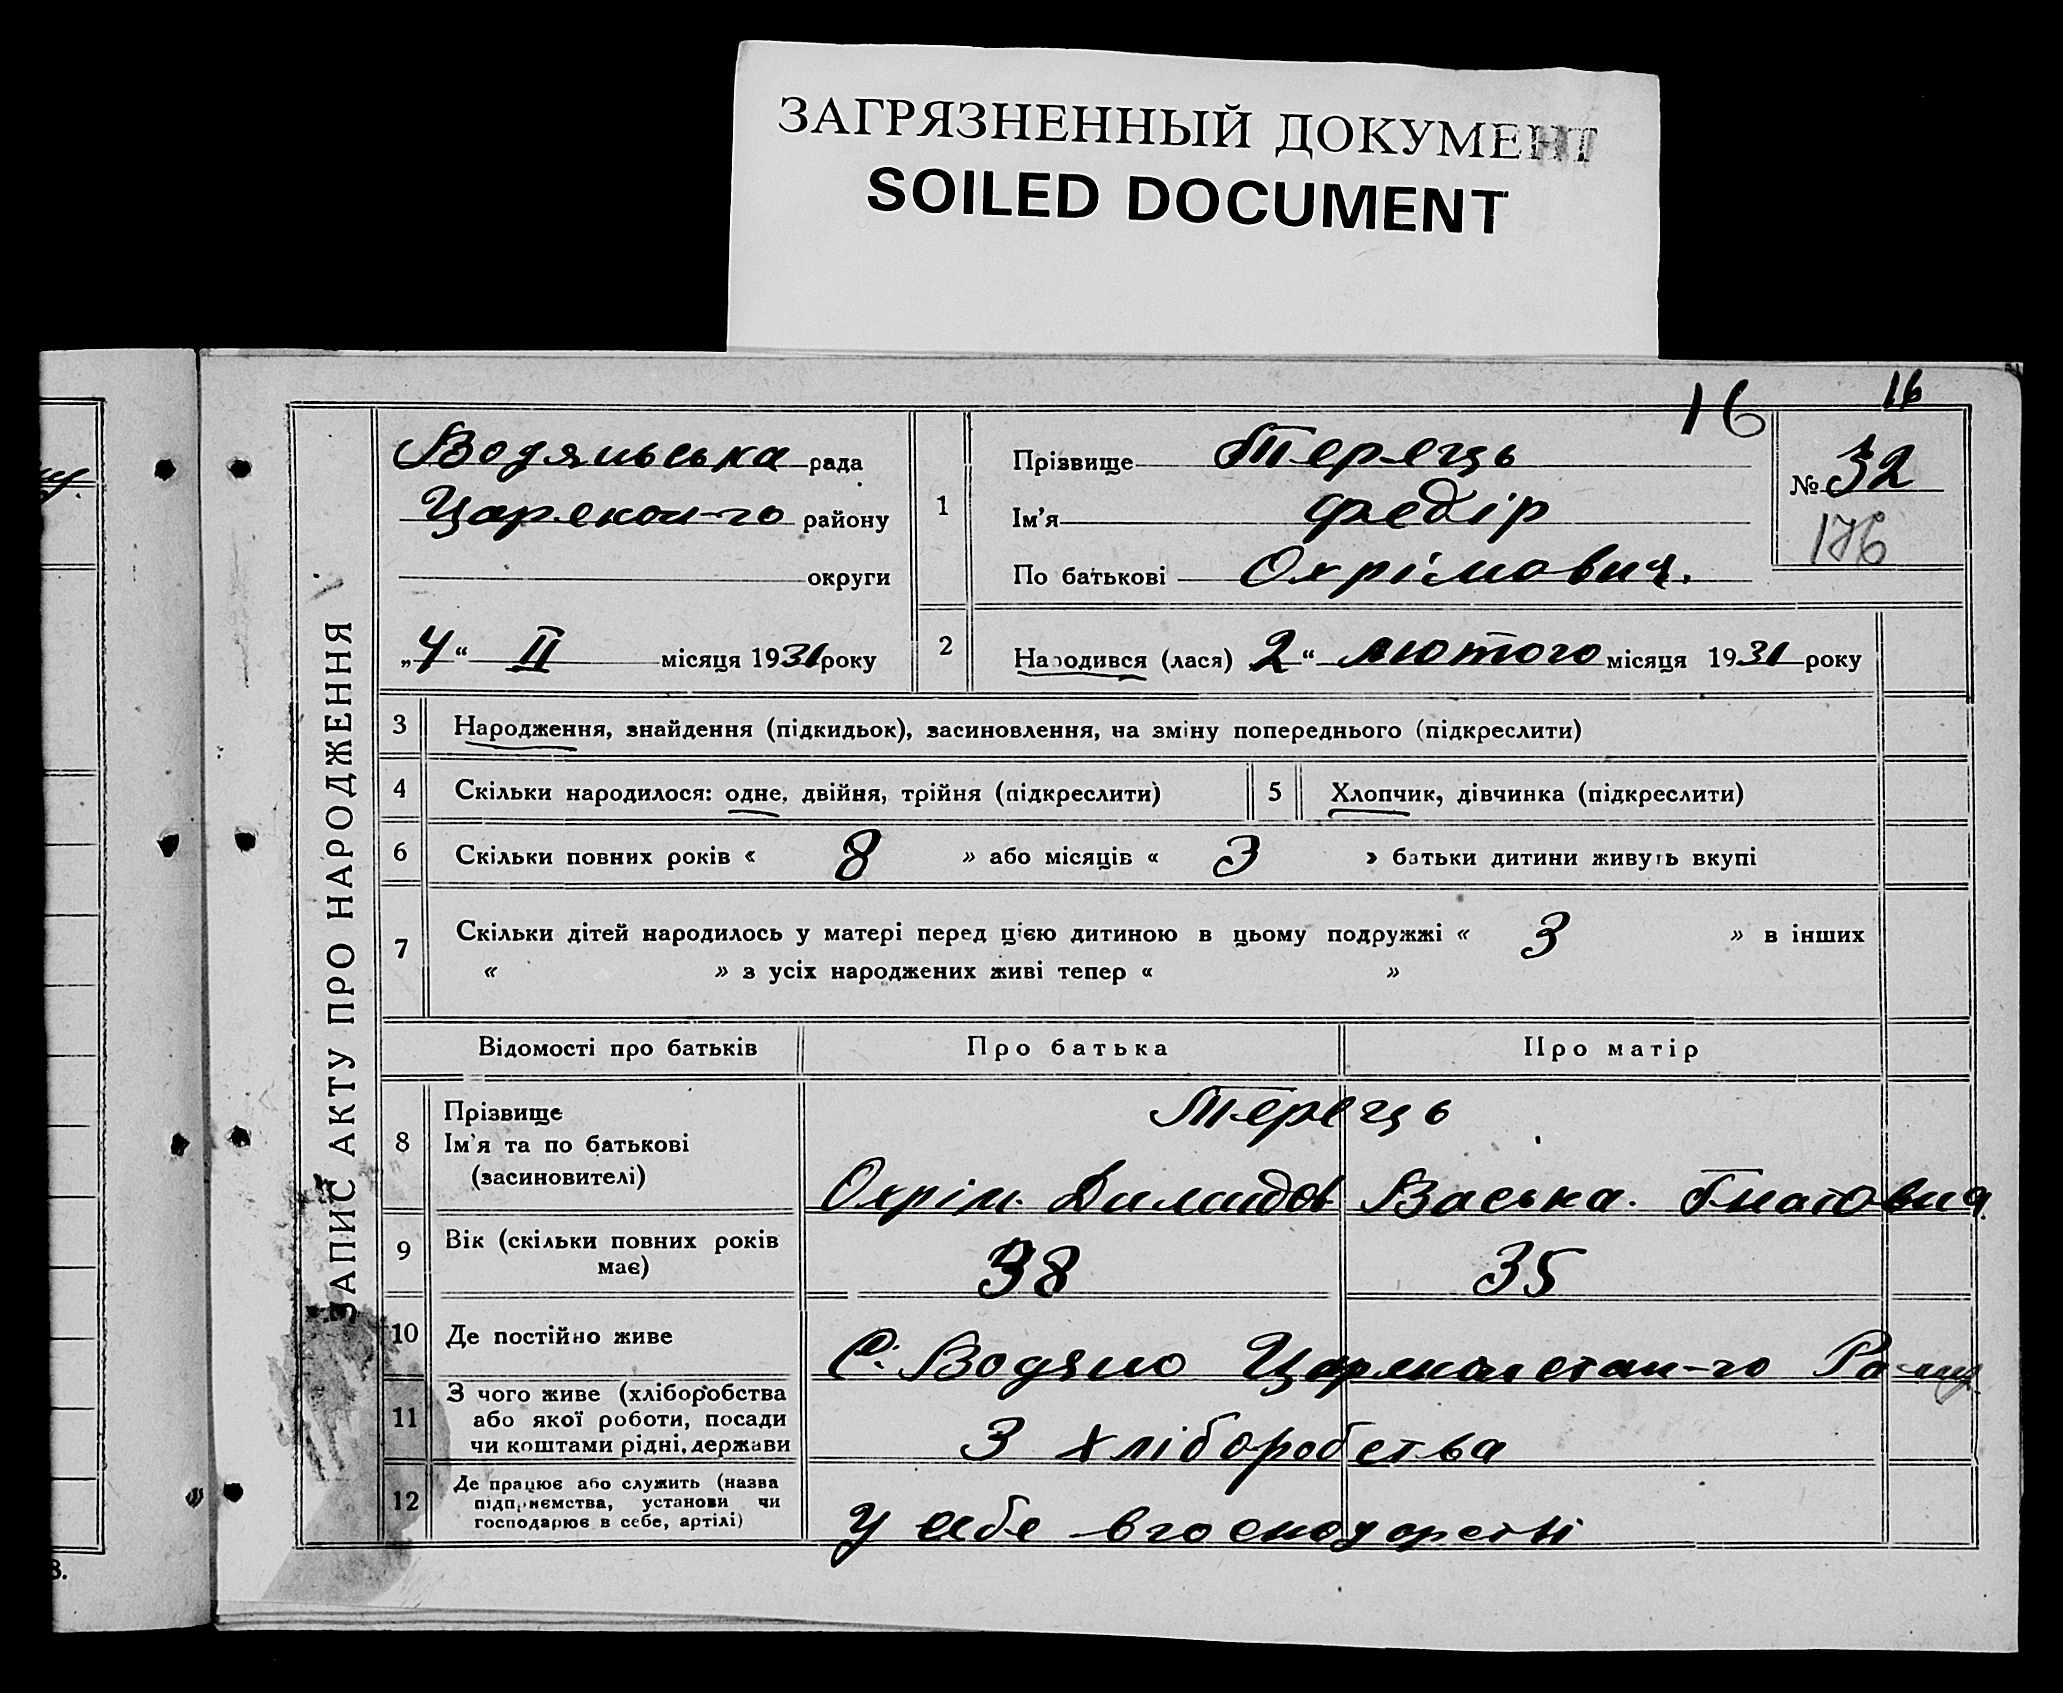 ЗАГРЯЗНЕННЫЙ ДОКУМЕНТ
SOILED DOCUMENT
16
16
ЗАПИС АКТУ ПРО НАРОДЖЕННЯ
Водяньська рада
району
округи
„4“ II місяця 1931 року
1
Прізвище Терець
Ім'я Федір
По батькові Охрімович.
№ 32
176
2
Народився (лася) 2“ лютого місяця 1931 року
3 Народження, знайдення (підкидьок), засиновлення, на зміну попереднього (підкреслити)
4 Скільки народилося: одне, двійня, трійня (підкреслити)
5 Хлопчик, дівчинка (підкреслити)
6 Скільки повних років « 8 » або місяців « 3 » батьки дитини живуть вкупі
7 Скільки дітей народилось у матері перед цією дитиною в цьому подружжі « 3 » в інших
« » з усіх народжених живі тепер « »
Відомості про батьків Про батька Про матір
8 Прізвище
Ім'я та по батькові
(засиновителі)
Терець
Охрім. Васька.
9 Вік (скільки повних років
має)
38 35
10 Де постійно живе
С. Водяно
11 З чого живе (хліборобства
або якої роботи, посади
чи коштами рідні, держави
З хліборобства
12 Де працює або служить (назва
підприємства, установи чи
господарює в себе, артілі)
у себе в господарстві